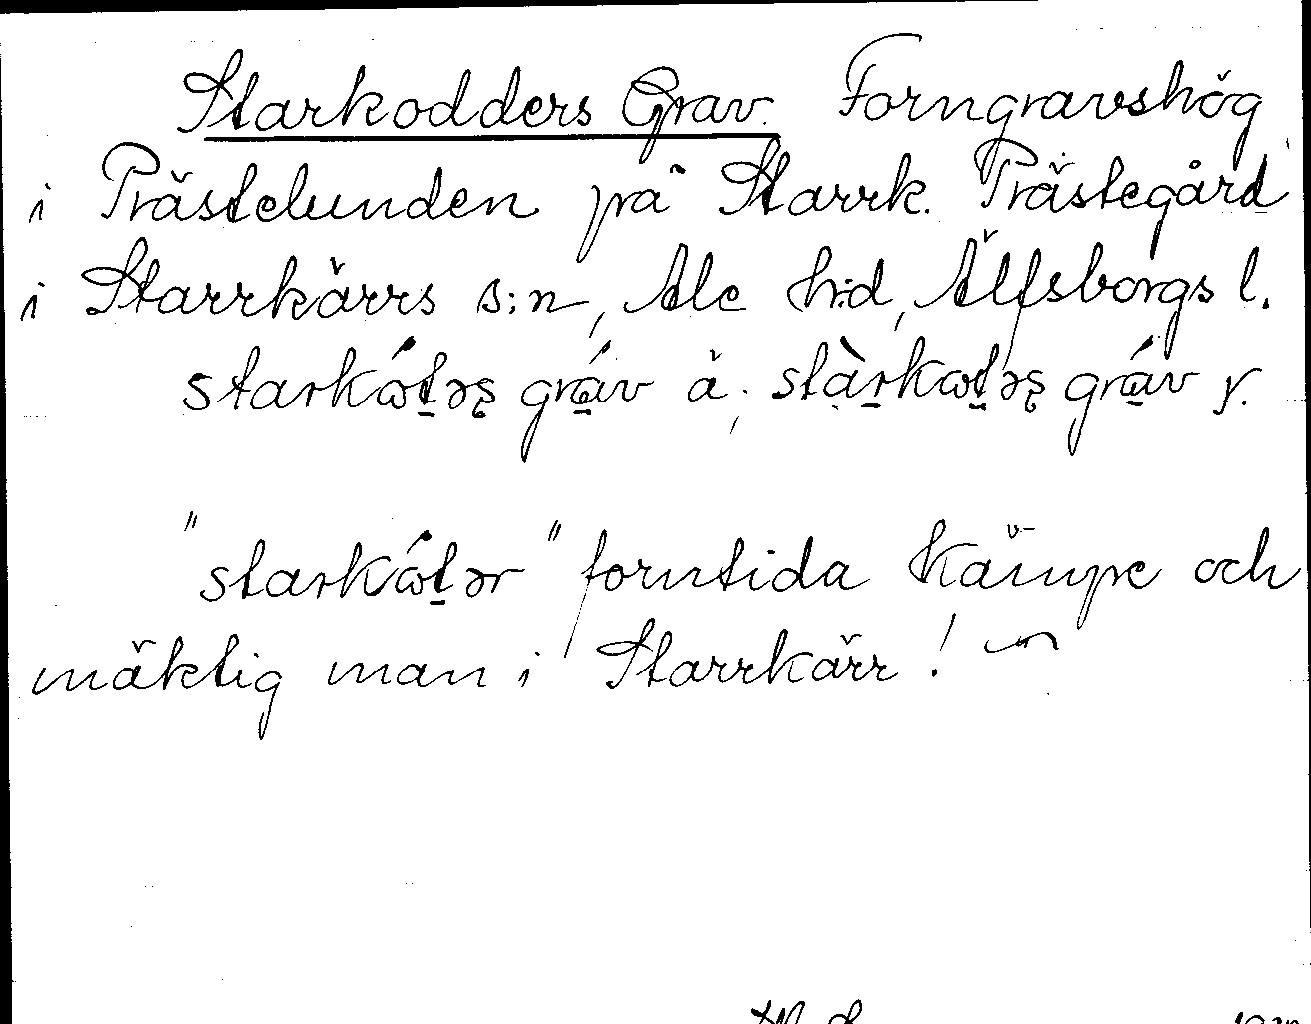 Starkodders Grav. Forngravshög
i Prästelunden på Starrk. Prästegård
i Starrkärrs s:n, Ale h:d, Älfsborgs l.
starkɷ́t̠əʂ grá̠v ä; stàr̠kɷt̠əʂ grá̠v y.
"starkɷ́t̠ər" forntida kämpe och
mäktig man i Starrkärr!